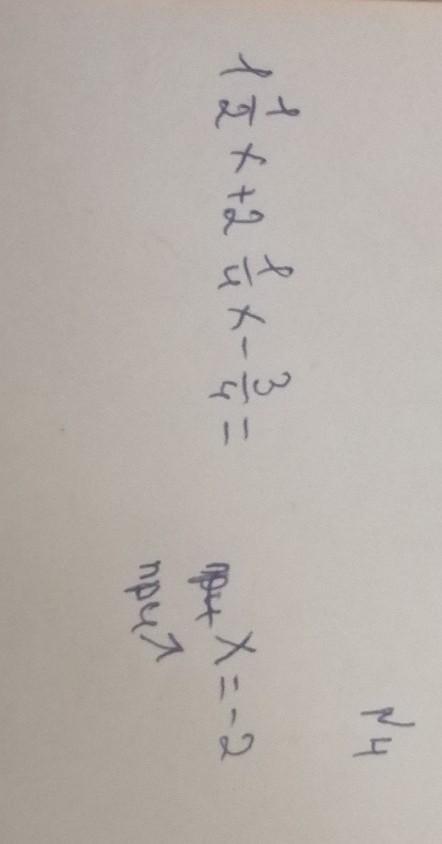 №4
1 1/2 x + 2 1/4 x - 3/4 = при x = -2
при ↗